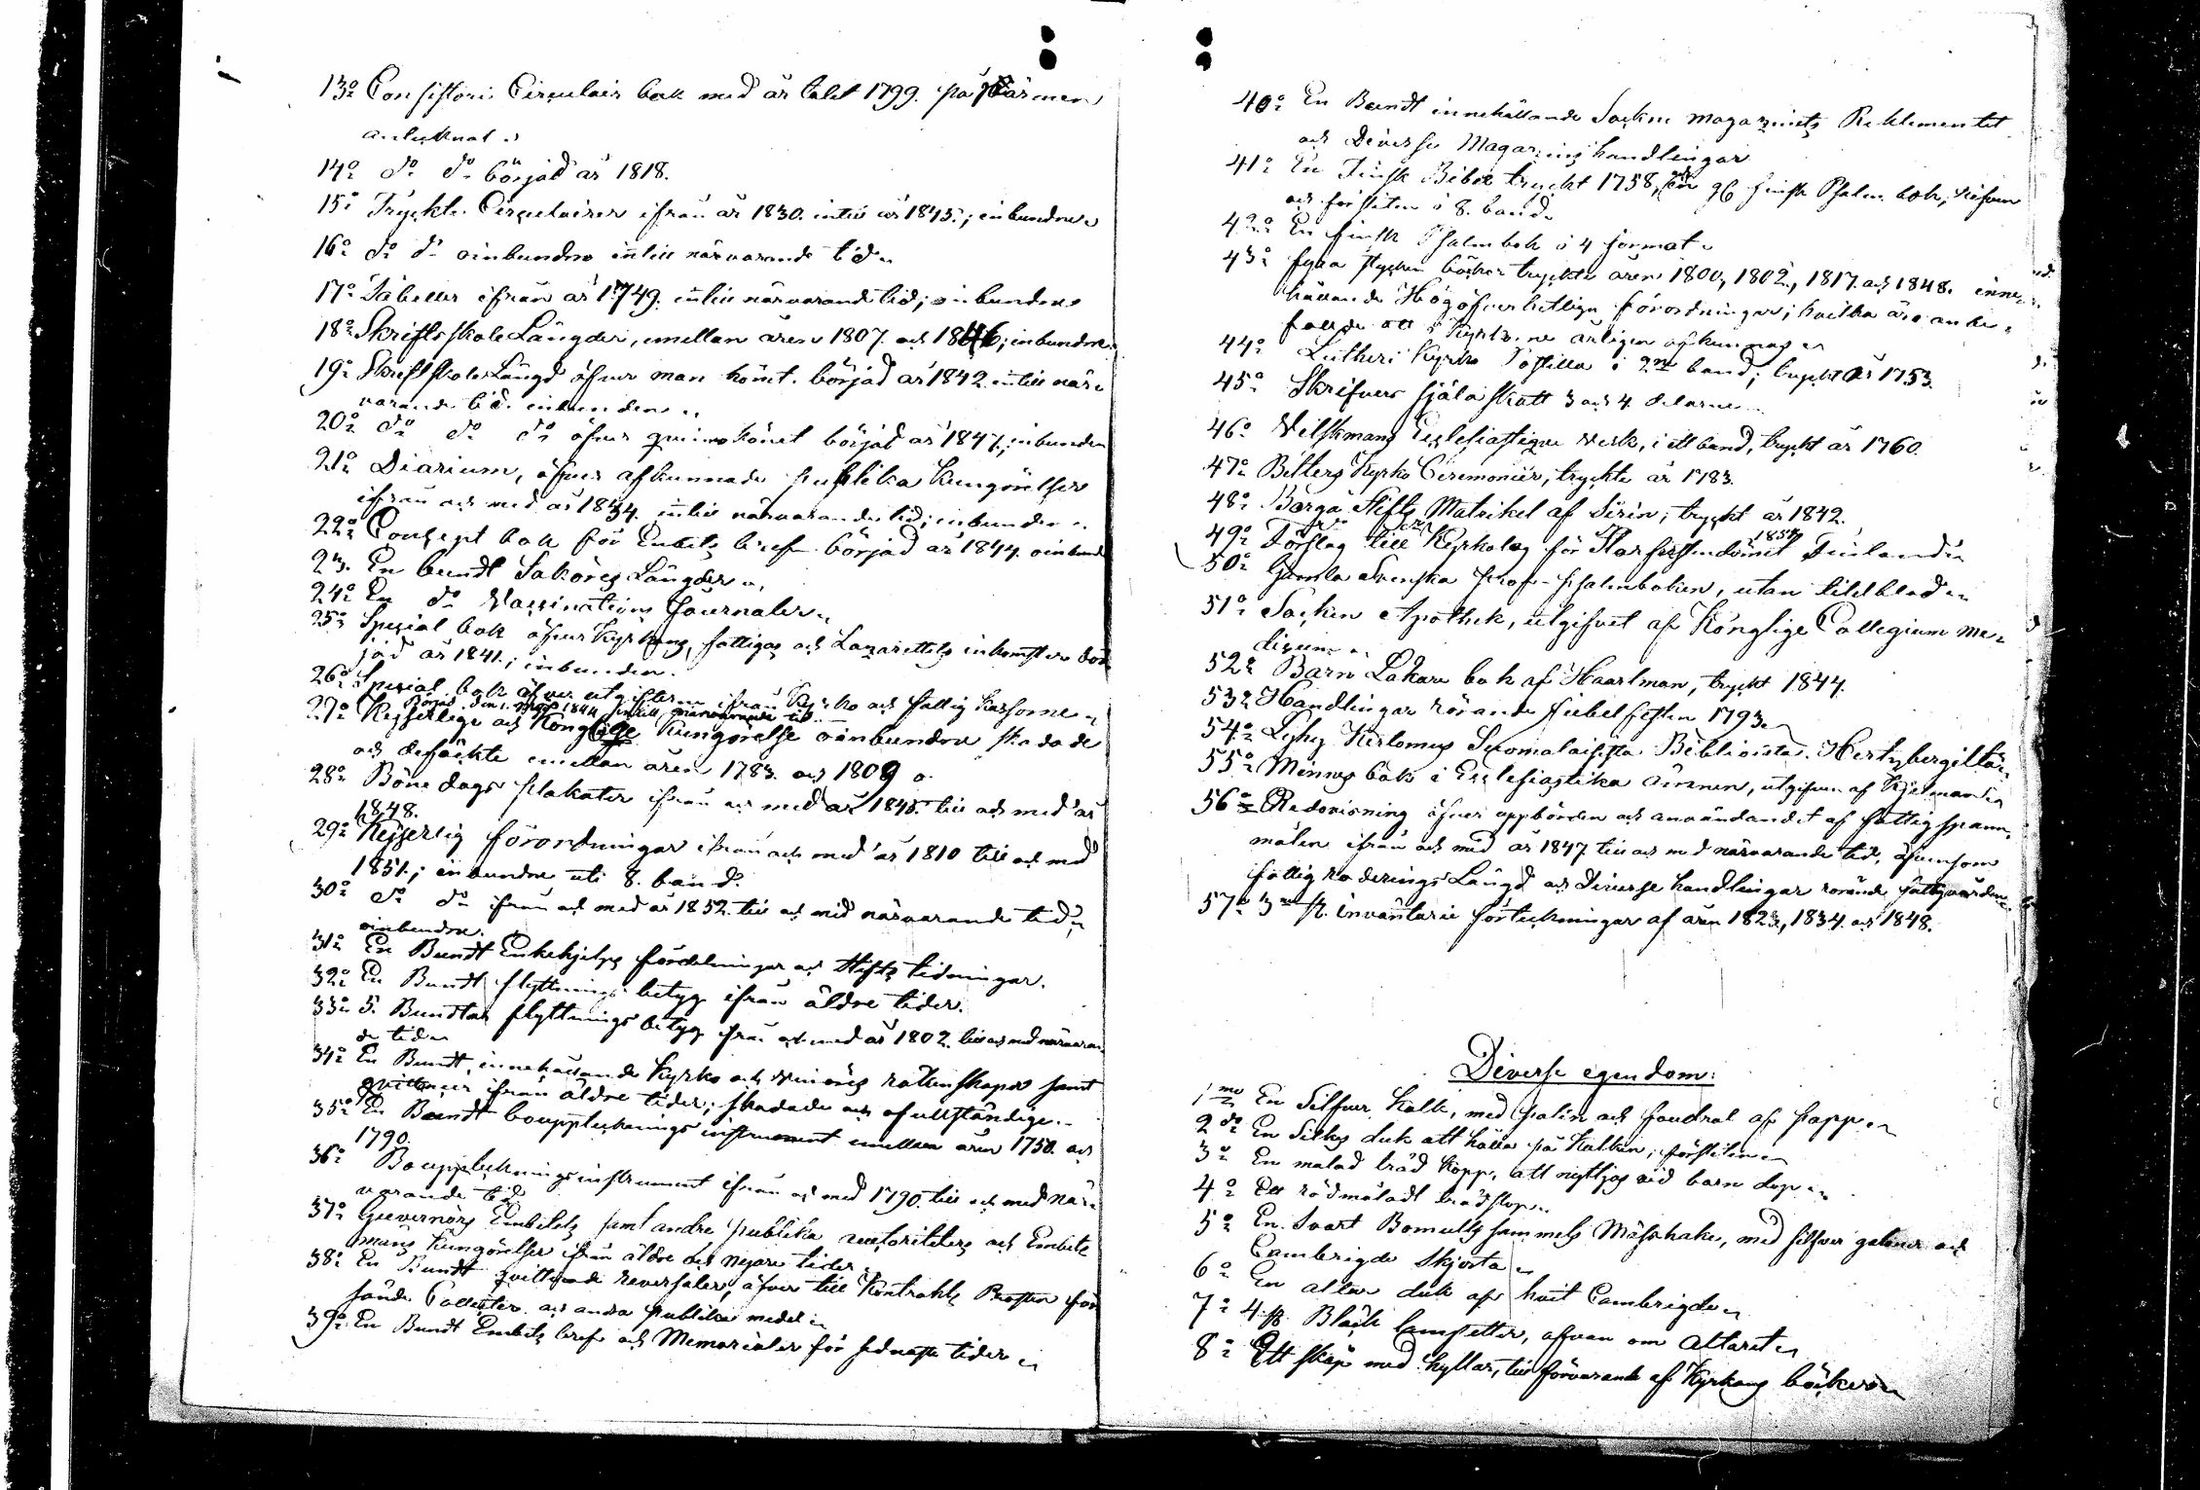 13o Consistorii Circulair bok med år talet 1799. på Pärmen
antecknat.
14o do do börjad år 1818.
15o Tryckte Circulairer ifrån år 1830. intill år 1845.; inbundne
16o do do oinbundne intill närvarande tid.
17o Tabeller ifrån år 1749. intill närvarande tid; inbundne
18o Skriftskole Längder, emellan åren 1807. och 1846; inbundne.
19o Skriftskole Längd öfver man könet. börjad år 1842. intill när-
varande tid. inbunden
20o do do do öfver qvinnokönet börjad år 1847.; inbunden
21o Diarium, öfver afkunnade publika Kungörelser
ifrån och med år 1834. intill närvarande tid; inbunden
22o Concept bok för Embets bref. börjad år 1844. oinbund
23. En bundt Saköres Längder
24o En do Vaccinations Journaler
25o Special bok öfver Kyrkans, fattigas och Lazarettets inkomster bör-
jad år 1841.; inbunden.
26o Special bok öfver utgifterne ifrån Kyrko och fattig Kassorne
Börjad den 1. 1844. intill närvarande tid.
27o Kejserlige och Konglige Kungörelse oinbundne skadade
och defäckte emellan åren 1783. och 1809
28o Böne dags plakater ifrån och med år 1845. till och med år
1848.
29o Kejserlig förordningar ifrån och med år 1810 till och med
1851.; inbundne uti 8. band.
30o do do ifrån och med år 1852. till och med närvarande tid;
oinbundne.
31o En Bundt Enkehjelps fördelningar och Stifts tidningar.
32o En Bundt flyttnings betyg ifrån äldre tider.
33o 5. Bundtar flyttnings betyg från och med år 1802. till och med närvaran
de tid
34o En Bundt, innehållande Kyrko och räkenskaper samt
qvittencer ifrån äldre tider; skadade och ofullständige.
35o En Bundt boupptecknings instrument emellan åren 1750. och
1790.
36o Bouppteckningsinstrument ifrån och med 1790. till och med när-
varande tid
37o Guvernörs Embetets samt andra publika auktoriteters och Embets
mäns Kungörelser ifrån äldre och nyare tider
38o En Bundt qvitterade reversaler, öfver till Kontrakts Prosten för
sände Collecter. och andra publika medel
39o En Bundt Embets bref och Memorialer för sednaste tider
40o En Bundt innehållande Sockne magazinets Reklementet
och Diverse Magazins handlingar
41o En Finsk Bibel tryckt 1758, en gl finsk Psalm bok, rifven
och försliten i 8. band.
42o En finsk Psalmbok i 4 format.
43o fyra stycken böcker tryckte åren 1800, 1802., 1817. och 1848. inne-
hållande Högöfverhetliga förordningar; hvilka äro anbe-
fallde att i Kyrkorne årligen afkunnas
44o Lutheri Kyrko Postilla i 2ne band; tryckt år 1753.
45o Skrifvers själaskatt 3 och 4. delarne
46o Wilskmans Ecclesiastique verk, i ett band, tryckt år 1760.
47o Bælters Kyrko Ceremonier, tryckte år 1783.
48o Borgå Stifts Matrikel af Sirén; tryckt år 1842.
49o Förslag till Kyrkolag för Storfurstendömet Finland
1857
50o Gamla Svenska prof-psalmboken, utan titelblad
51o Socken Apothek, utgifvet af Konglige Collegium me-
dicum
52o Barn Läkare bok af Haartman, tryckt 1844.
53o Handlingar rörande jubelfesten 1793.
54o Lyhy Kertomus Suomalaisista Biblioista. Hertzbergiltä
55o Minnes bok i Ecclesiastika ämnen, utgifven af Hjelmman
56o Redovisning öfver uppbörden och användandet af fattig spann-
målen ifrån och med år 1847. till och med närvarande tid, äfvensom
fattig roderings Längd och Diverse handlingar rörande fattigvården
57o 3ne st. inventarie förteckningar af åren 1823, 1834. och 1848.
Diverse egendom:
1mo En Silfver Kalk, med patén och foudral af papp
2do En Silkes duk att hålla på Kalken; försliten
3o En målad träd kopp, att nyttjas vid barn dop
4o Ett rödmåladt trädstop
5o En Svart Bomulls sammets Mässhake, med silfver galoner och
Cambrigde skjorta
6o En altar duk af hvit Cambrigde
7o 4. st. Bläck lampetter, ofvan om altaret
8o Ett skåp med hyllor, till förvarande af Kyrkans böcker